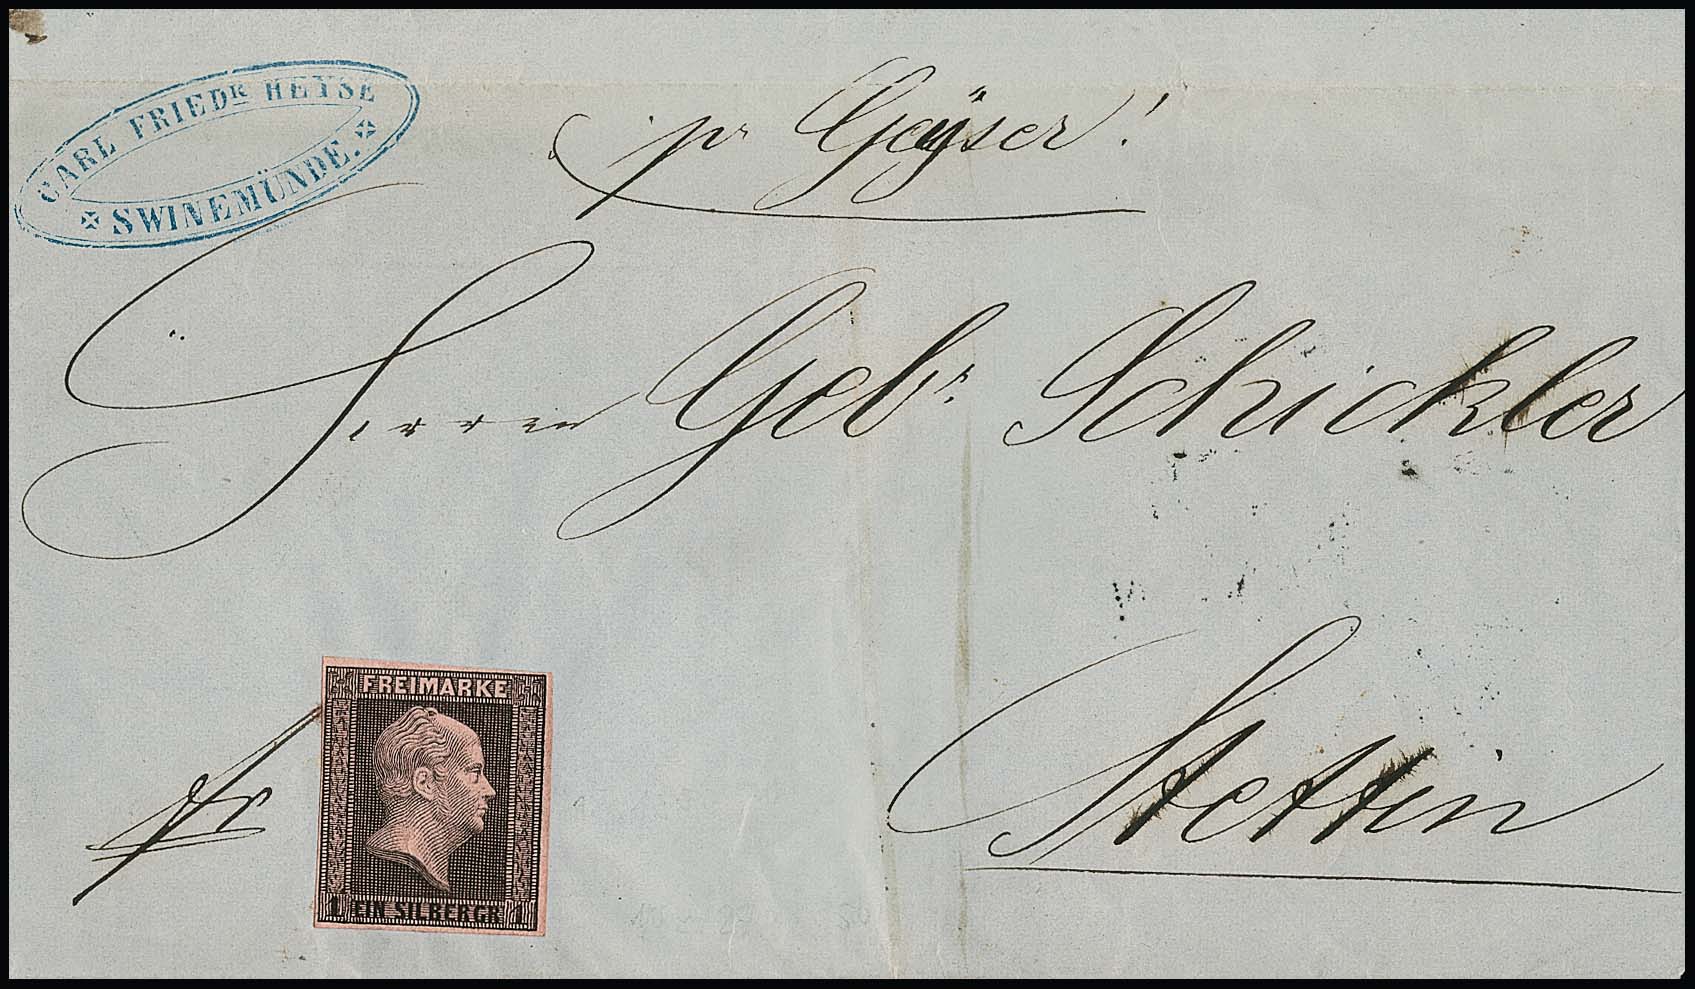 CARL FRIEDR HEYSE
SWINEMÜNDE.
pr Geÿser!
Herren Gebr Schickler
Stettin
fr
FREIMARKE
1 EIN SILBERGR 1